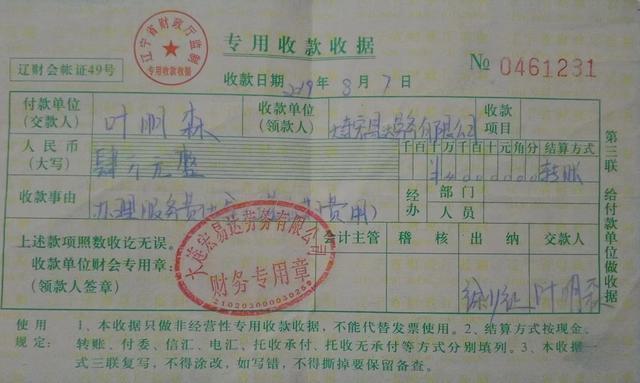 辽宁省财政厅监制
专用收款收据
专用收款收据
辽财会帐证49号
收款日期2019年8月7日
№ 0461231
付款单位
(交款人)
叶明森
收款单位
(领款人)
有限公司
收款
项目
人民币
(大写)
肆万元整
千百十万千百十元角分
结算方式
转账
收款事由
办理服务费
费用)
经办
部门
人员
上述款项照数收讫无误。
收款单位财会专用章:
(领款人签章)
大连宏易达劳务有限公司
财务专用章
会计主管
稽核
出纳
交款人
叶明森
第三联 给付款单位做收据
使用 1、本收据只做非经营性专用收款收据,不能代替发票使用。2、结算方式按现金、
规定: 转账、付委、信汇、电汇、托收承付、托收无承付等方式分别填列。3、本收据一
式三联复写,不得涂改,如写错,不得撕掉要保留备查。